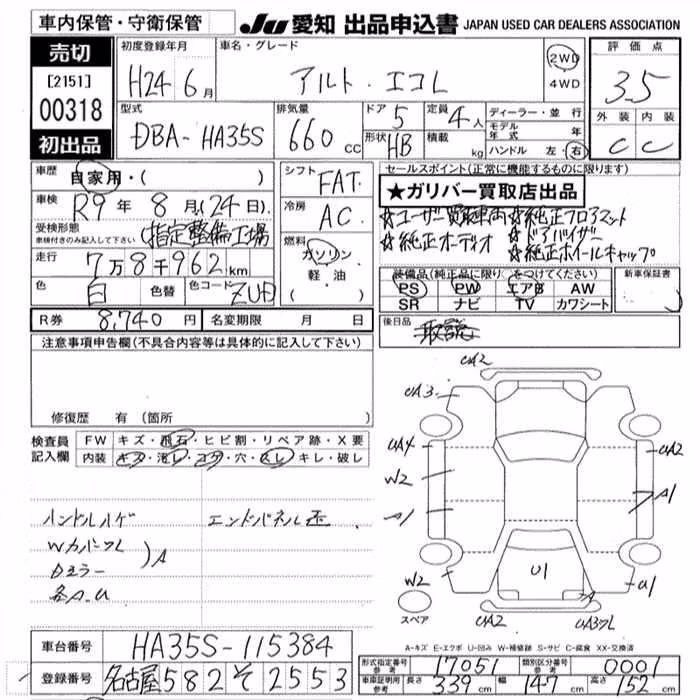 車内保管・守衛保管
JU 愛知 出品申込書 JAPAN USED CAR DEALERS ASSOCIATION
売切
[2151]
00318
初出品
初度登録年月
H24 6月
車名・グレード
アルト・エコL
2WD
4WD
評価点
3.5
外装 内装
C C
型式
DBA-HA35S
排気量
660 CC
ドア 5
形状 HB
定員 4人
積載 kg
ディーラー・並行
モデル年式 年
ハンドル 左・右
車歴
自家用・( )
車検
R9年 8月(24日)
受検形態
車検付きのみ記入して下さい
(指定整備工場
走行
7万8千962km
色 白 色替 色コード ZUD
シフト
FAT
冷房
AC
燃料
ガソリン
軽・油
( )
セールスポイント(正常に機能するものに限ります)
★ガリバー買取店出品
☆ユーザー買取車両 ☆純正フロアマット
☆純正オーディオ ☆ドアバイザー
☆純正ホイールキャップ
装備品(純正品に限り○をつけてください)
PS PW エアB AW
SR ナビ TV カワシート
新車保証書
R券 8,740円 名変期限 月 日
後日品
取説
注意事項申告欄(不具合内容等は具体的に記入して下さい)
修復歴 有(箇所 )
検査員記入欄
FW キズ・飛石・ヒビ割・リペア跡・X要
内装 キズ・汚レ・コゲ・穴・スレ・キレ・破レ
ハンドルハゲ
エンドパネル歪
Wカバーズレ
Dミラー
各A.U
)A
UA2
UA3
UA4
W2
A1
W2
UA2
A1
U1
U1
A
UA2
UA3ズレ
スペア
A-キズ E-エクボ U-凹み W-補修跡 S-サビ C-腐食 XX-交換済
車台番号 HA35S-115384
登録番号 名古屋 582 そ 2553
形式指定番号 参考 17051
類別区分番号 参考 0001
車庫証明用 参考 長さ 339 cm 幅 147 cm 高さ 152 cm